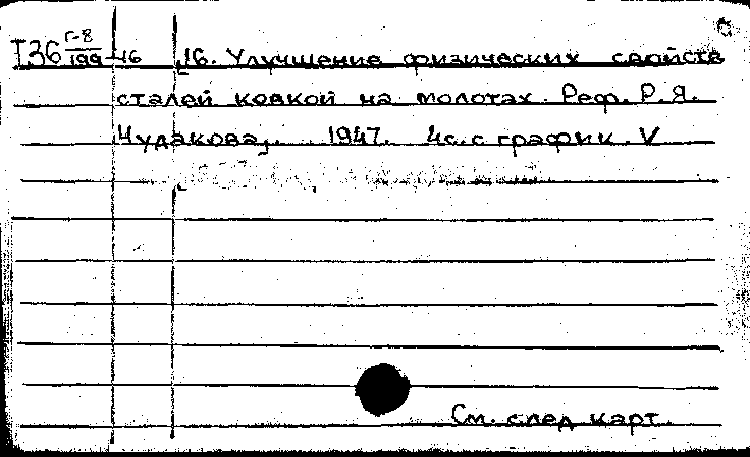 Т36 Г-8/199-16 16. Улучшение физических свойств
сталей ковкой на молотах. Реф. Р.Я.
Чудакова, 1947. 4с. с график. V
См. след карт.